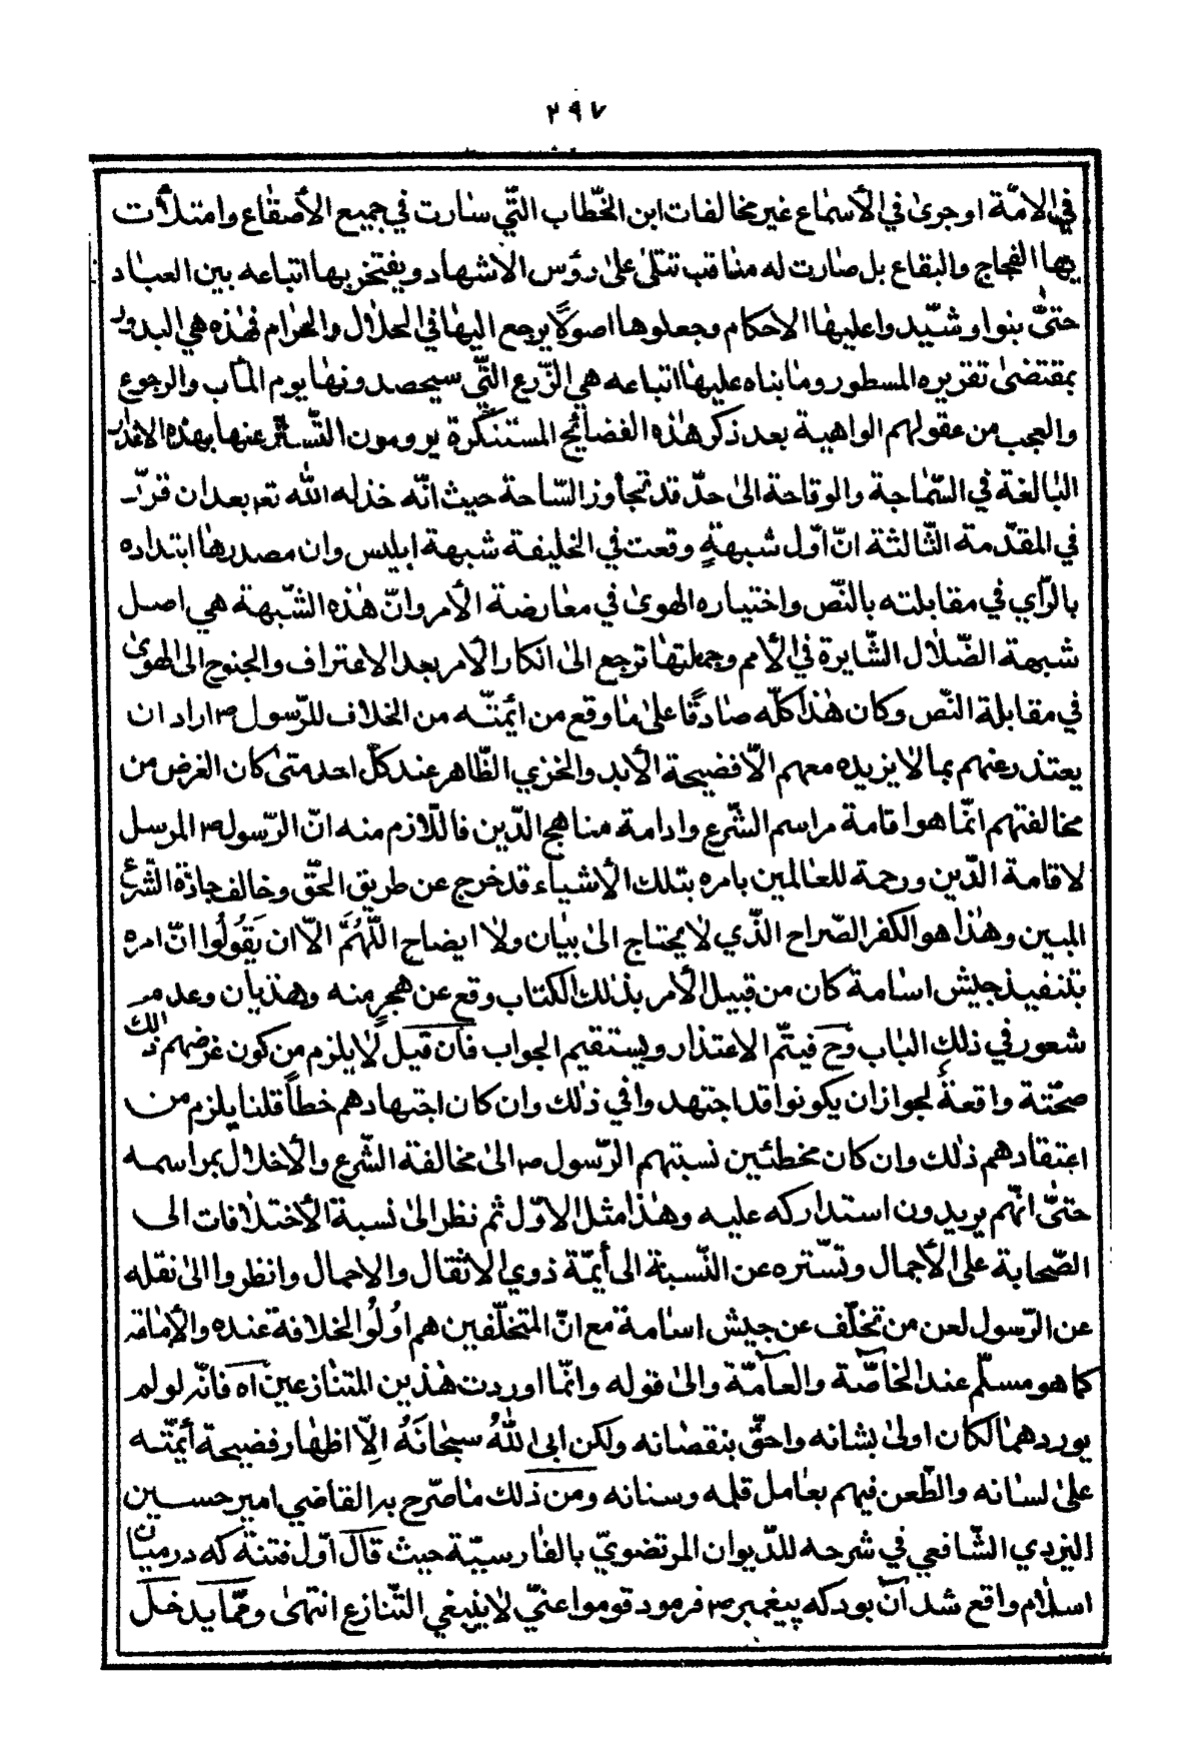 ٢٩٧
في الامّة او جرىٰ في الأسماع غير مخالفات ابن الخّطاب التّي سٰارت في جميع الأصقٰاع وامتلأت
بها الفجاج والبقاع بل صٰارت له منٰاقب تتلىٰ علىٰ رؤس الاشهاد ويفتخر بها اتباعه بين العبٰاد
حتىّٰ بنوا وشيّدوا عليهٰا الاحكام وجعلوها اصولًا يرجع اليهٰا في الحلال والحرام فهٰذه هي البدور
بمقتضىٰ تقريره المسطور ومٰا بناه عليهٰا اتباعه هي الزّرع التّي سيحصدونهٰا يوم المٰاب والرجوع
والعجب من عقولهم الواهية بعد ذكر هٰذه الفضائح المستنكرة يرومون التّستّر عنها بهذه الاعذار
البٰالغة في السّمٰاجة والوقاحة الىٰ حدّ قد تجٰاوز السّاحة حيث انّه خذله اللّه تعٰ بعد ان قرّر
في المقدّمة الثّالثة انّ اوّل شبهةٍ وقعت في الخليفة شبهة ابليس وان مصدرهٰا ابتداده
بالرّأي في مقابلته بالنّص واختياره الهوىٰ في معٰارضة الأمر وانّ هٰذه الشّبهة هي اصل
شبهة الضّلال السّايرة في الأمم وجملتهٰا ترجع الىٰ انكار الأمر بعد الاعتراف والجنوح الى الهوىٰ
في مقابلة النّص وكان هٰذا كلّه صٰادقًا علىٰ مٰا وقع من ائمتّه من الخلاف للرّسول ص اراد ان
يعتذر عنهم بمٰا لا يزيده معهم الّا فضيحة الأبد والخزي الظّاهر عند كلّ احد متىٰ كان الغرض من
مخالفتهم انّمٰا هو اقامة مراسم الشّرع وادامة مناهج الدّين فاللّازم منه انّ الرّسول ص المرسل
لاقامة الدّين ورحمة للعٰالمين بامره بتلك الأشياء قد خرج عن طريق الحقّ وخالف جادّة الشّرع
المبين وهٰذا هو الكفر الصّراح الذّي لا يحتاج الىٰ بيٰان ولا ايضاح اللّهُمَّ الّا ان يَقُولُوا انّ امره
بتنفيذ جيش اسٰامة كان من قبيل الأمر بذلك الكتاب وقع عن هجرٍ منه وهذيٰان وعدم
شعور في ذلك البٰاب وح فيتمّ الاعتذار ويستقيم الجواب فان قيل لا يلزم من كون غرضهم ذلك
صحّتة واقعةً لجواز ان يكونوا قد اجتهدوا في ذلك وان كان اجتهادهم خطأً قلنا يلزم من
اعتقادهم ذلك وان كان مخطئين نسبتهم الرّسول ص الىٰ مخالفة الشّرع والأخلال بمراسمه
حتىّٰ انّهم يريدون استداركه عليه وهٰذا مثل الاوّل ثم نظر الىٰ نسبة الأختلافات الى
الصّحابة على الأجمال وتستّره عن النّسبة الى أيمّة ذوي الاثقال والاحمال وانظروا الىٰ نقله
عن الرّسول لعن من تخلّف عن جيش اسٰامة مع انّ المتخلّفين هم اُولُوا لخلافة عنده والأمٰامة
كما هو مسلّم عند الخاصّة والعامّة والىٰ قوله وانّمٰا اوردت هٰذين المتنازعين آه فانّه لو لم
يوردهمٰا لكان اولىٰ بشانه واحقّ بنقصٰانه ولكن ابى اللّٰهُ سبحٰانَهُ الِّا اظهٰار فضيحة أيمّتّه
علىٰ لسٰانه والطّعن فيهم بعٰامل قلمه وسنانه ومن ذلك مٰا صّرح به القاضي امير حسين
اليزدي الشّافعي في شرحه للدّيوان المرتضويّ بالفٰارسيّة حيث قال اوّل فتنة كه در ميٰان
اسلام واقع شد آن بود كه پيغمبر ص فرمود قوموا عنّي لا ينبغي التّنازع انتهىٰ وممّا يدخل